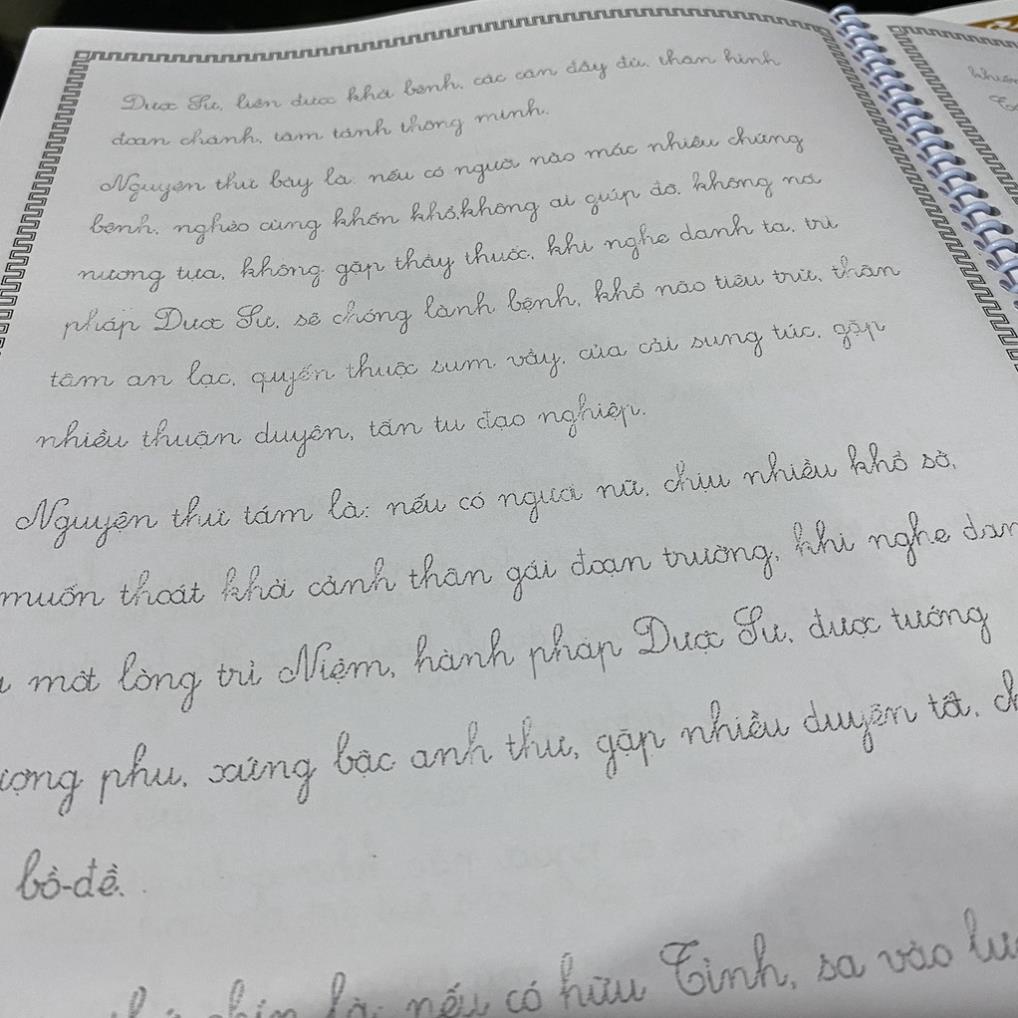 Dược Sư, liền được khỏi bệnh, các căn đầy đủ, thân hình
đoan chánh, tâm tánh thông minh.
Nguyện thứ bảy là: nếu có người nào mắc nhiều chứng
bệnh, nghèo cùng khốn khổ, không ai giúp đỡ, không nơi
nương tựa, không gặp thầy thuốc, khi nghe danh ta, trì
pháp Dược Sư, sẽ chóng lành bệnh, khổ não tiêu trừ, thân
tâm an lạc, quyến thuộc sum vầy, của cải sung túc, gặp
nhiều thuận duyên, tấn tu đạo nghiệp.
Nguyện thứ tám là: nếu có người nữ, chịu nhiều khổ sở,
muốn thoát khỏi cảnh thân gái đoạn trường, khi nghe
một lòng trì Niệm, hành pháp Dược Sư, được tướng
phu, xứng bậc anh thư, gặp nhiều duyên tốt,
bồ-đề.
là: nếu có hữu Tình, sa vào